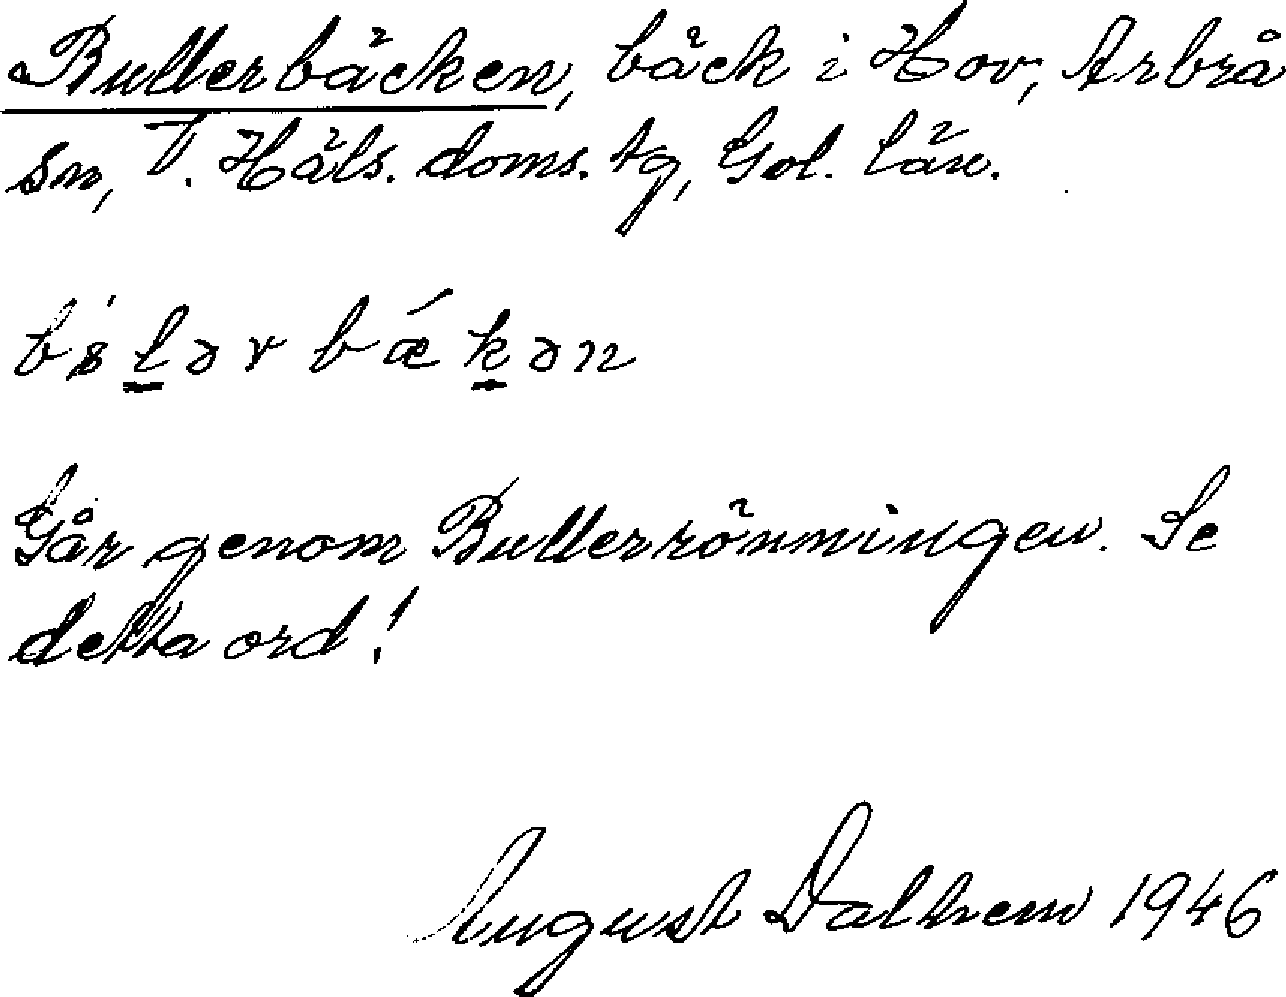 Bullerbäcken, bäck i Hov, Arbrå
sn, V. Häls. doms. tg, Gäl. län.
Går genom Bullerrönningen. Se
detta ord!
August Dalhem 1946